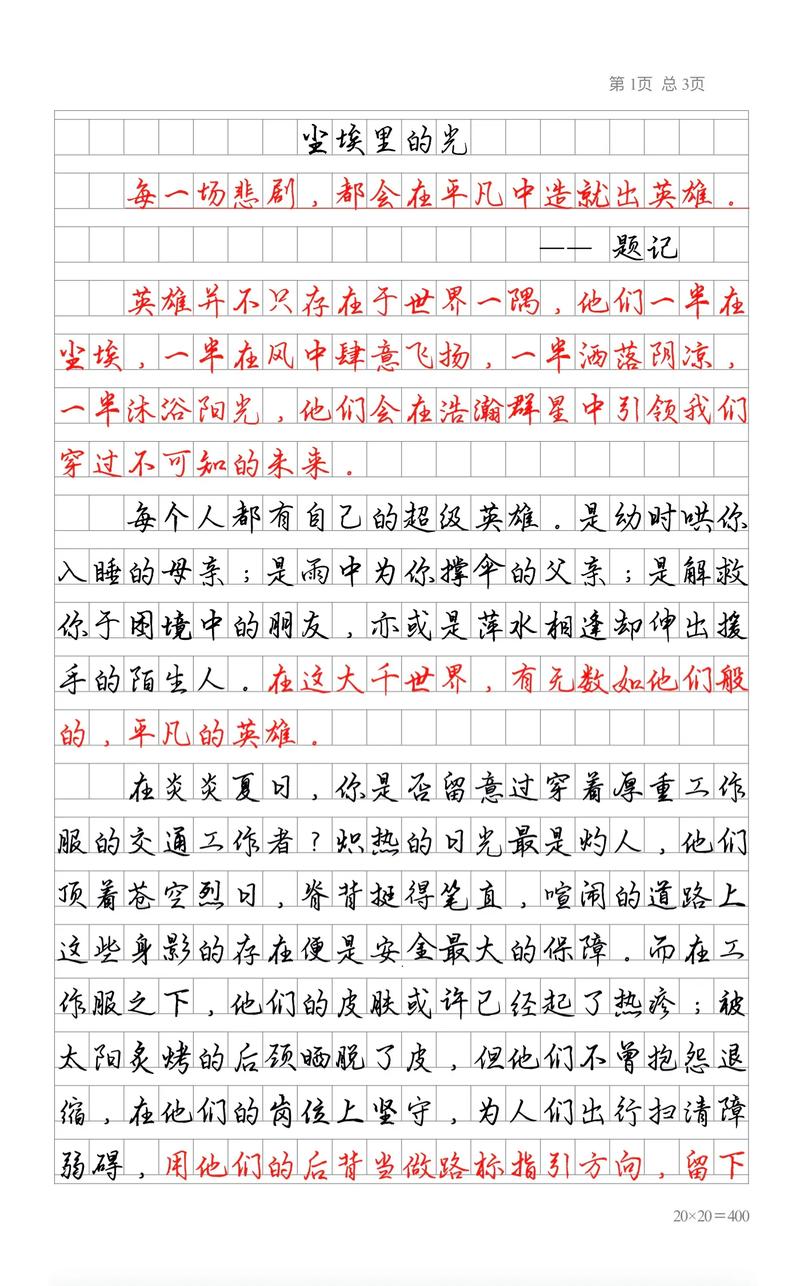 第1页 总3页
尘埃里的光
每一场悲剧，都会在平凡中造就出英雄。
—— 题记
英雄并不只存在于世界一隅，他们一半在
尘埃，一半在风中肆意飞扬，一半洒落阴凉，
一半沐浴阳光，他们会在浩瀚群星中引领我们
穿过不可知的未来。
每个人都有自己的超级英雄。是幼时哄你
入睡的母亲；是雨中为你撑伞的父亲；是解救
你于困境中的朋友，亦或是萍水相逢却伸出援
手的陌生人。在这大千世界，有无数如他们般
的，平凡的英雄。
在炎炎夏日，你是否留意过穿着厚重工作
服的交通工作者？炽热的日光最是灼人，他们
顶着苍空烈日，脊背挺得笔直，喧闹的道路上
这些身影的存在便是安全最大的保障。而在工
作服之下，他们的皮肤或许已经起了热疹；被
太阳炙烤的后颈晒脱了皮，但他们不曾抱怨退
缩，在他们的岗位上坚守，为人们出行扫清障
弱碍，用他们的后背当做路标指引方向，留下
20×20＝400